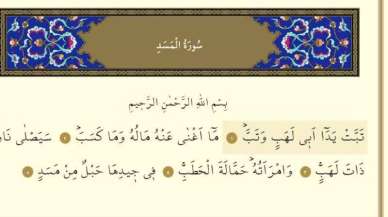 سُورَةُ الْمَسَدِ
بِسْمِ اللهِ الرَّحْمٰنِ الرَّحِيمِ
تَبَّتْ يَدَٓا اَبٖي لَهَبٍ وَتَبَّۜ ﴿١﴾ مَٓا اَغْنٰى عَنْهُ مَالُهُ وَمَا كَسَبَۜ ﴿٢﴾ سَيَصْلٰى نَارًا
ذَاتَ لَهَبٍۚ ﴿٣﴾ وَامْرَاَتُهُۜ حَمَّالَةَ الْحَطَبِۚ ﴿٤﴾ فٖي جٖيدِهَا حَبْلٌ مِنْ مَسَدٍ ﴿٥﴾